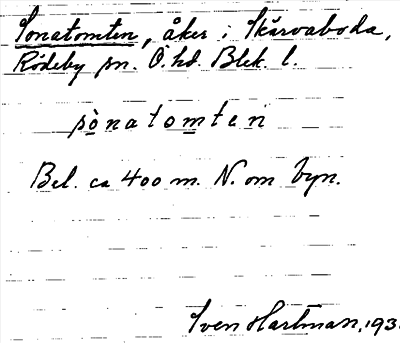 Sonatomten, åker i Skärvaboda,
Rödeby sn. Ö. hd. Blek. l.
sònatomten
Bel. ca 400 m. N. om byn.
Sven Hartman, 193